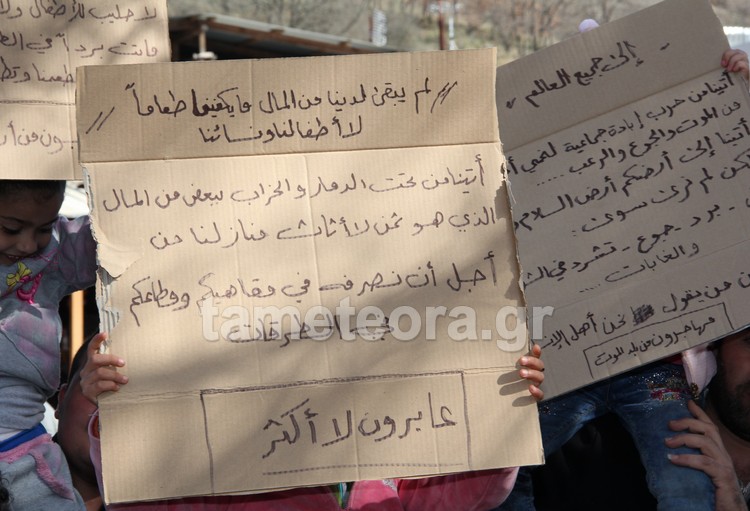 لا حليب للأطفال ولا
// لم يبقى لدينا من المال ما يكفينا طعاماً //
لأطفالنا ونسائنا
أتينا من تحت الدمار والخراب ببعض من المال
الذي هو ثمن لأثاث منازلنا من
أجل أن نصرفه في مقاهيكم ومطاعمكم
في الطرقات
عابرون لا أكثر
// إلى جميع العالم //
أتينا من حرب إبادة جماعية
من الموت والجوع والرعب ......
أتينا إلى أرضكم أرض السلام
لم نرى سوى :
برد - جوع - تشرد في
والغابات .....
من يقول نحن أهل
مهاجرون من بلد الموت
tameteora.gr